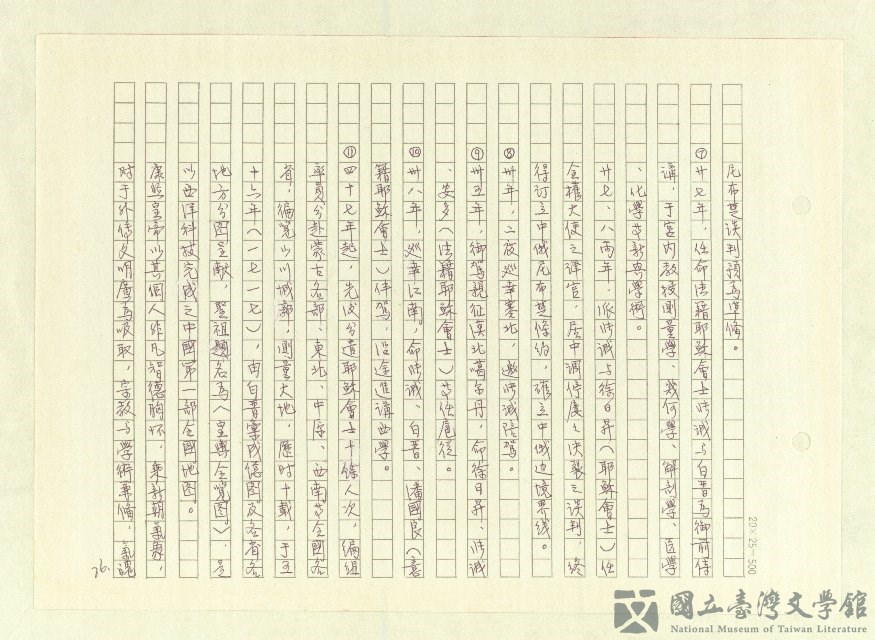 尼布楚談判預為準備。
⑦廿七年，任命法籍耶穌會士张誠与白晋為御前侍
講，于宮內教授測量學、幾何學、解剖學、医學
、化學等新興學術。
廿七、八兩年，派张誠与徐日昇（耶穌會士）任
全權大使之譯官，居中調停屢々决裂之談判，終
得訂立中俄尼布楚條约，確立中俄边境界线。
⑧卅年，二度巡幸塞北，邀张誠陪駕。
⑨卅五年，御駕親征漠北噶尔丹，命徐日昇、张誠
、安多（法籍耶穌會士）等任扈從。
⑩卅八年，巡幸江南。命张誠、白晋、潘國良（意
籍耶穌會士）侍駕，沿途進講西學。
⑪四十七年起，先後分遣耶穌會士十餘人次，編組
率員分赴蒙古各部、東北、中原、西南等全國各
省，徧覽山川城郭，測量大地，歷时十載，于五
十六年（一七一七），由白晋彙成總图及各省各
地方分图呈献，聖祖題名為《皇輿全覽图》，是
以西洋科技完成之中國第一部全國地图。
康熙皇帝以其個人非凡智德胸怀，秉新朝氣象，
对于外德文明廣為吸取，宗教与學術兼備，氣魂
26.
20×25=500
國立臺灣文學館
National Museum of Taiwan Literature